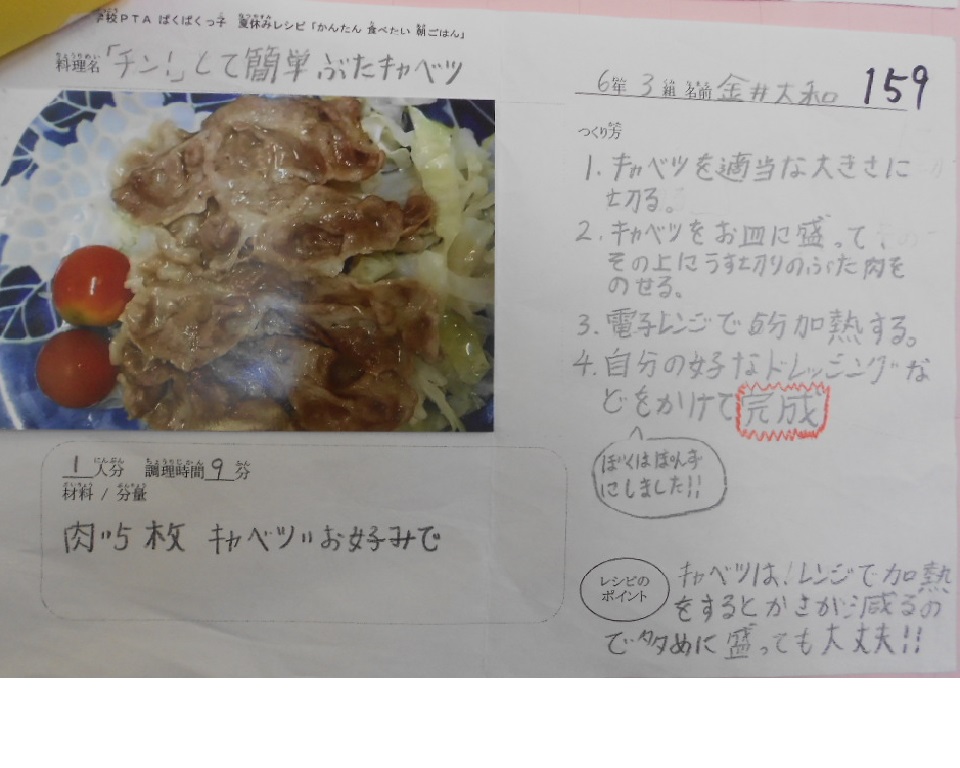 学校PTA ぱくぱくっ子 夏休みレシピ「かんたん 食べたい 朝ごはん」
料理名「チン!」して簡単ぶたキャベツ
6年 3組 名前 金井大和 159
つくり方
1. キャベツを適当な大きさに
切る。
2. キャベツをお皿に盛って
その上にうす切りのぶた肉を
のせる。
3. 電子レンジで6分加熱する。
4. 自分の好なドレッシングな
どをかけて完成
ぼくはぽんず
にしました!!
1人分 調理時間9分
材料 / 分量
肉〃5枚 キャベツ〃お好みで
レシピの
ポイント
キャベツは!レンジで加熱
をするとかさが減るの
で多めに盛っても大丈夫!!